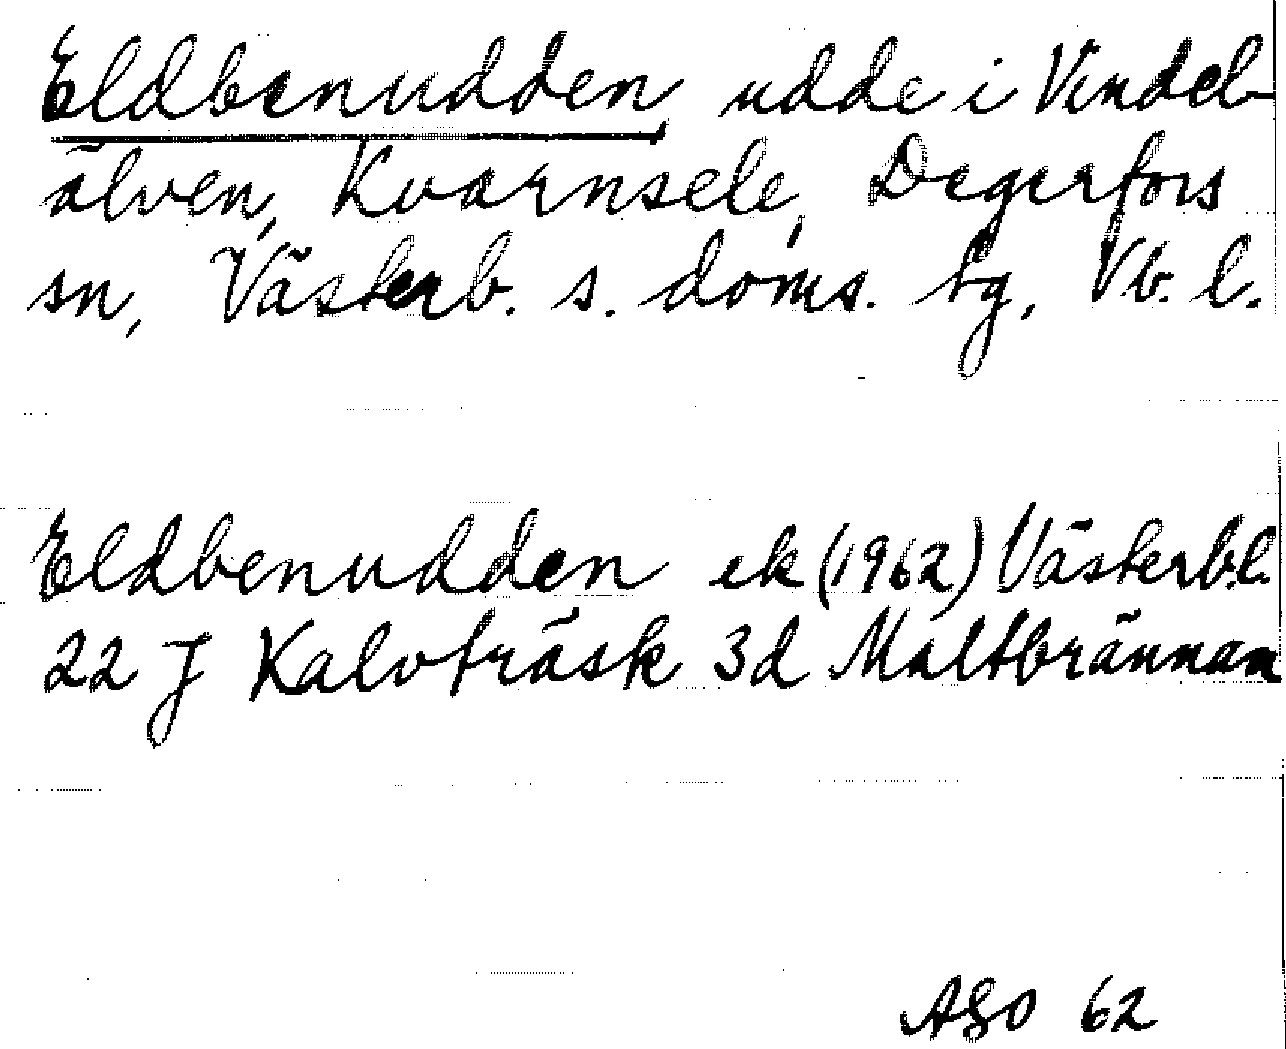 Eldbenudden, udde i Vindel-
älven, Kvarnsele, Degerfors
sn, Västerb. s. doms. tg, Vb. l.
Eldbenudden ek (1962) Västerb.l.
22 J Kalvträsk 3d Maltbrännan
AGO 62